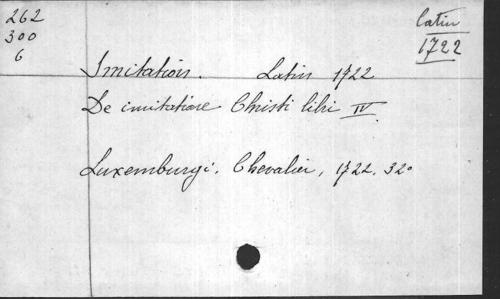 262
300
6
Latin
1722
Imitation. Latin 1722
De imitatione Christi libri IV
Luxemburgi. Chevalier, 1722. 32°